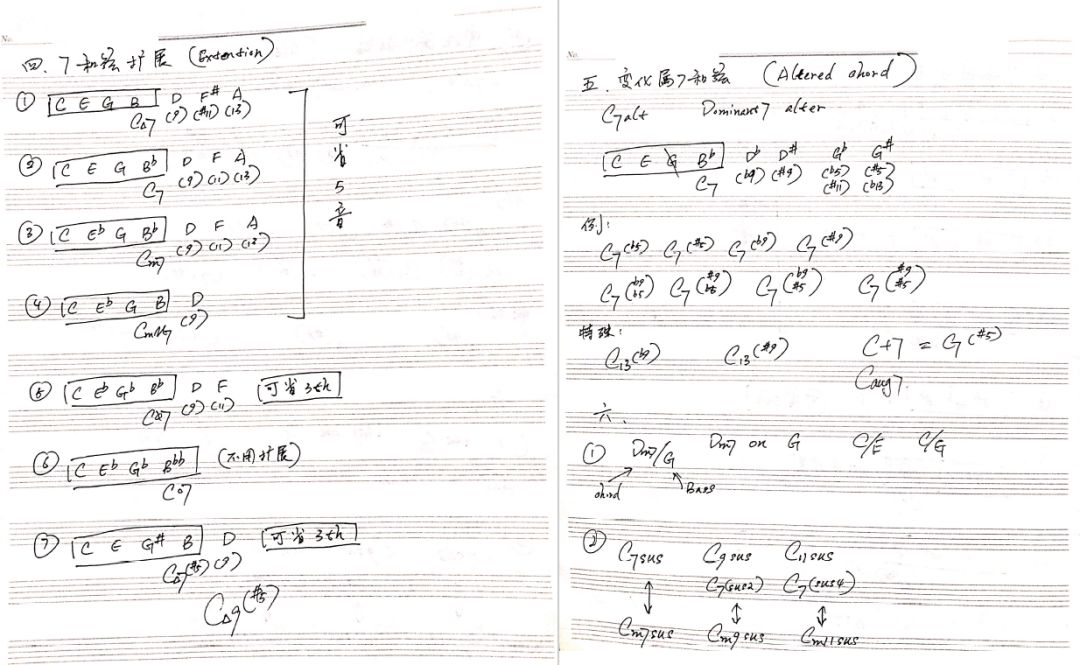 No.
四. 7和弦扩展 (Extention)
① C E G B D F# A
C△7 (9) (#11) (13)
② C E G Bb D F A
C7 (9) (11) (13)
③ C Eb G Bb D F A
Cm7 (9) (11) (13)
④ C Eb G B D
CmM7 (9)
可省5音
⑤ C Eb Gb Bb D F 可省3th
CØ7 (9) (11)
⑥ C Eb Gb Bbb (不用扩展)
Co7
⑦ C E G# B D 可省3th
C△7(#5) (9)
C△9(#5)
No.
五. 变化属7和弦 (Altered chord)
C7alt Dominant7 alter
C E G Bb Db D# Gb G#
C7 (b9) (#9) (b5) (#5)
(#11) (b13)
例:
C7(b5) C7(#5) C7(b9) C7(#9)
C7(b9 b5) C7(#9 b5) C7(b9 #5) C7(#9 #5)
特殊:
C13(b9) C13(#9) C+7 = C7(#5)
Caug7.
六.
① Dm7/G Dm7 on G C/E C/G
chord Bass
② C7sus C9sus C11sus
C7(sus2) C7(sus4)
Cm7sus Cm9sus Cm11sus